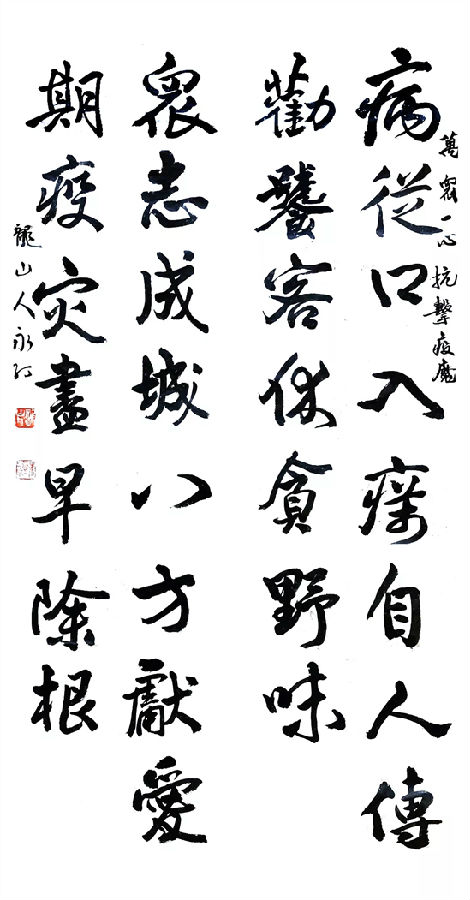 萬眾一心抗擊疫魔
病從口入自人傳
勸饕客休貪野味
眾志成城八方獻愛
期疫灾盡早除根
龍山人永江